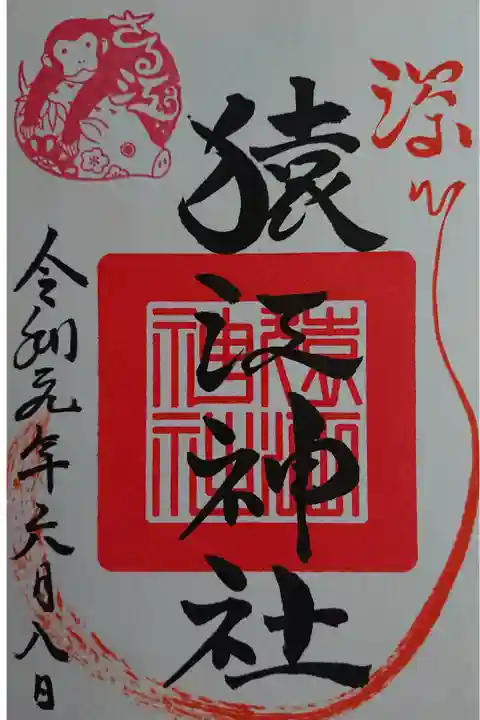 深川
さる江
猿江神社
猿江
神社
令和元年六月八日